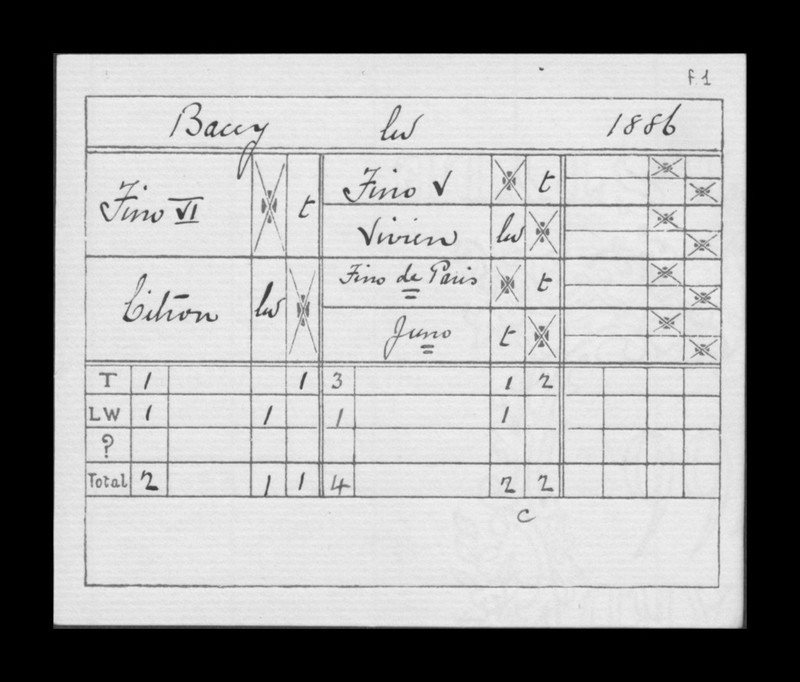 f. 1
Baccy lw 1886
Fino VI t Fino V t
Vivien lw
Citron lw Fino de Paris t
Juno t
T 1 1 3 1 2
LW 1 1 1 1
?
Total 2 1 1 4 2 2
C